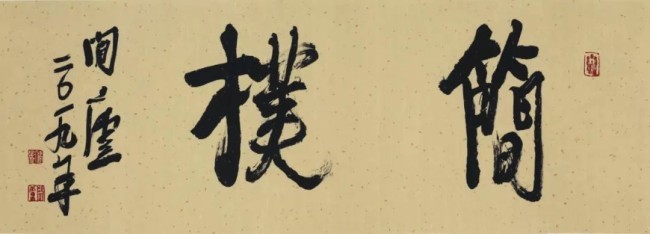 簡樸
間廬
二〇一九年